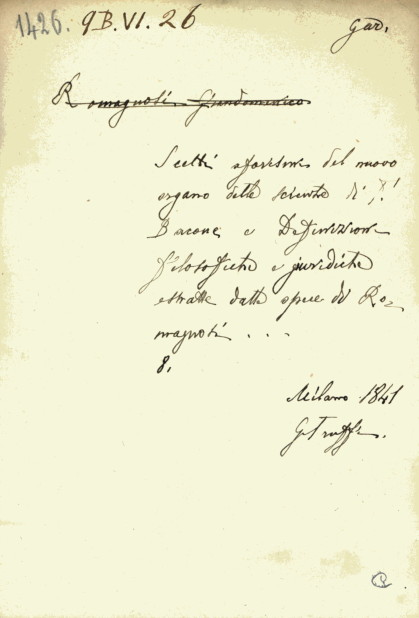 1426. 9B.VI.26
Gar.
Romagnosi Giandomenico
Scelti aforismi del nuovo
organo delle scienze di
Bacone e Definizioni
filosofiche e giuridiche
estratte dalle opere di Ro-
magnosi . . .
8.
Milano 1841
G. Truffi.